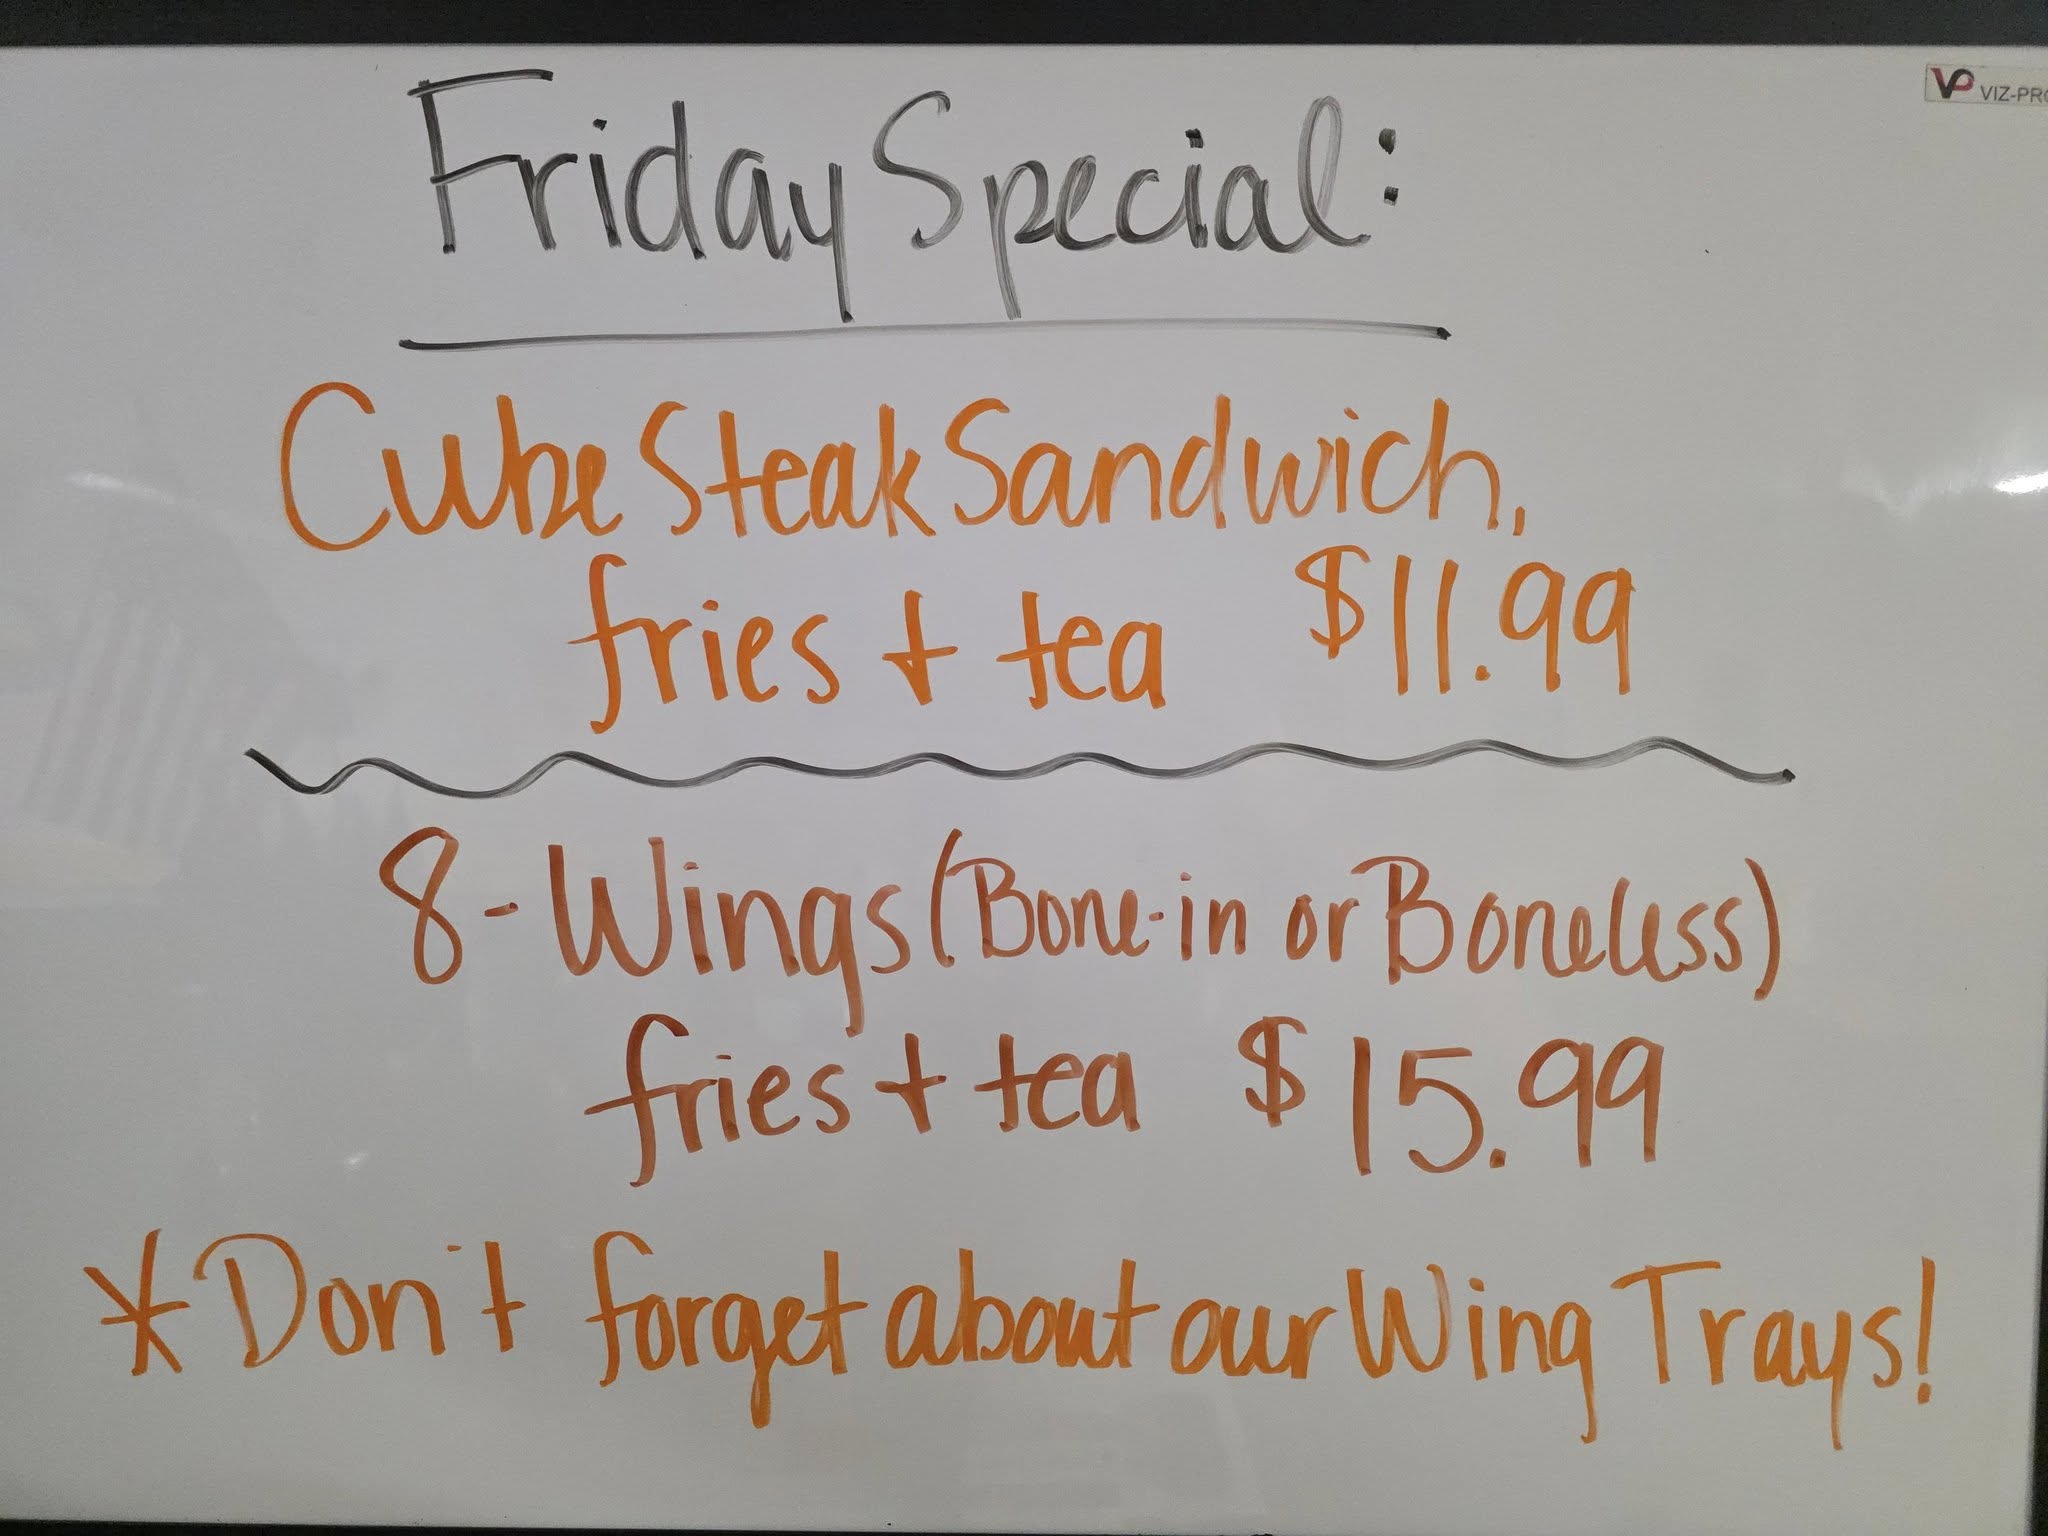 VIZ-PRO
Friday Special:
Cube Steak Sandwich,
fries + tea $11.99
8-Wings (Bone-in or Boneless)
fries + tea $15.99
*Don't forget about our Wing Trays!